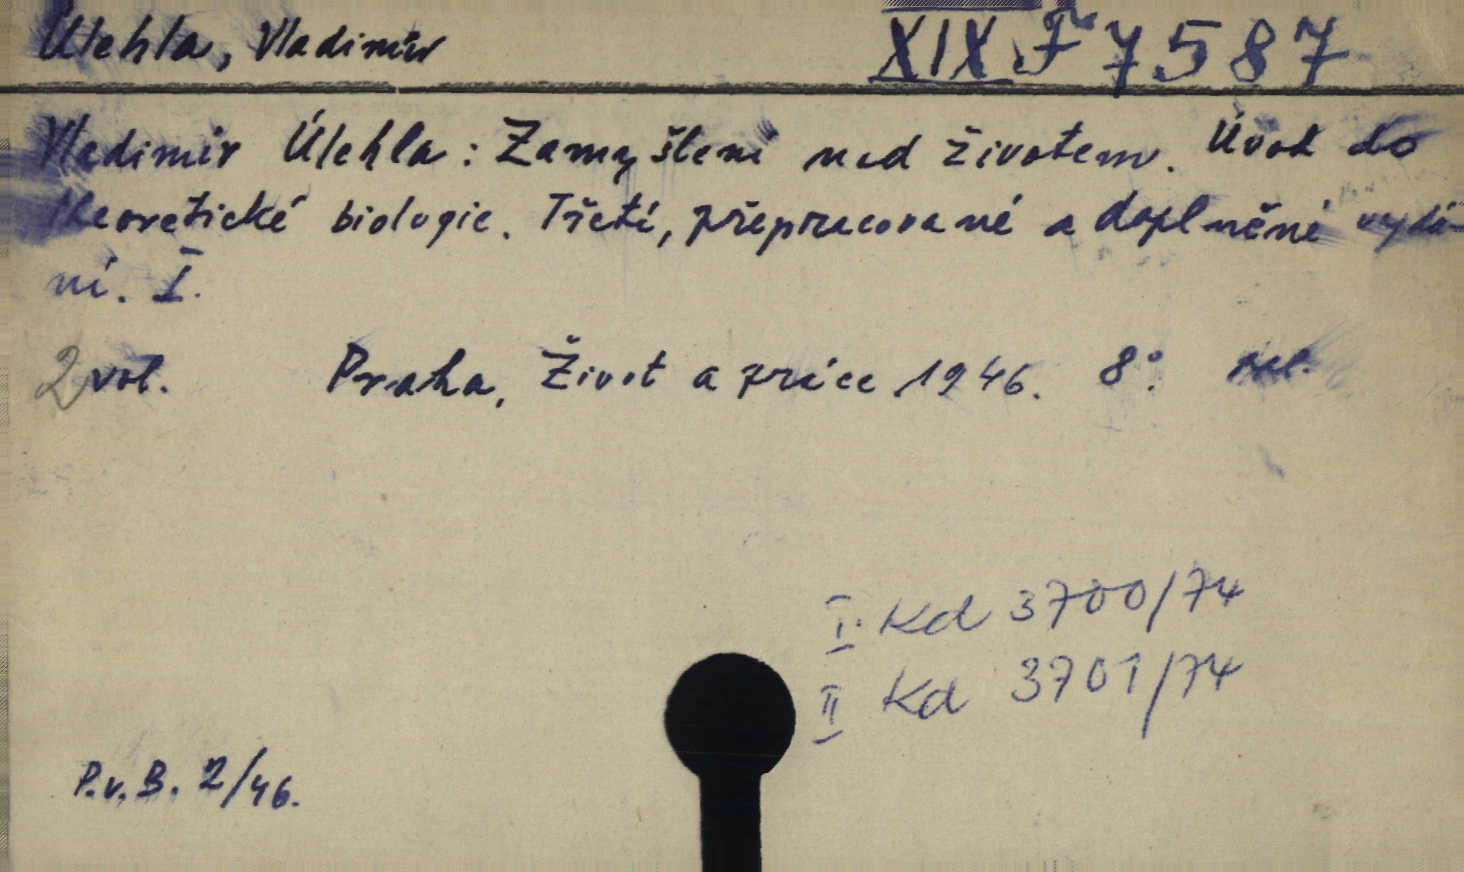 Úlehla, Vladimír XIX F 7587
Vladimír Úlehla: Zamyšlení nad životem. Úvod do
theoretické biologie. Třetí, přepracované a doplněné vydá-
ní. I.
2 vol. Praha, Život a práce 1946. 8°.
I. Kd 3700/74
II Kd 3701/74
P.v.B. 2/46.